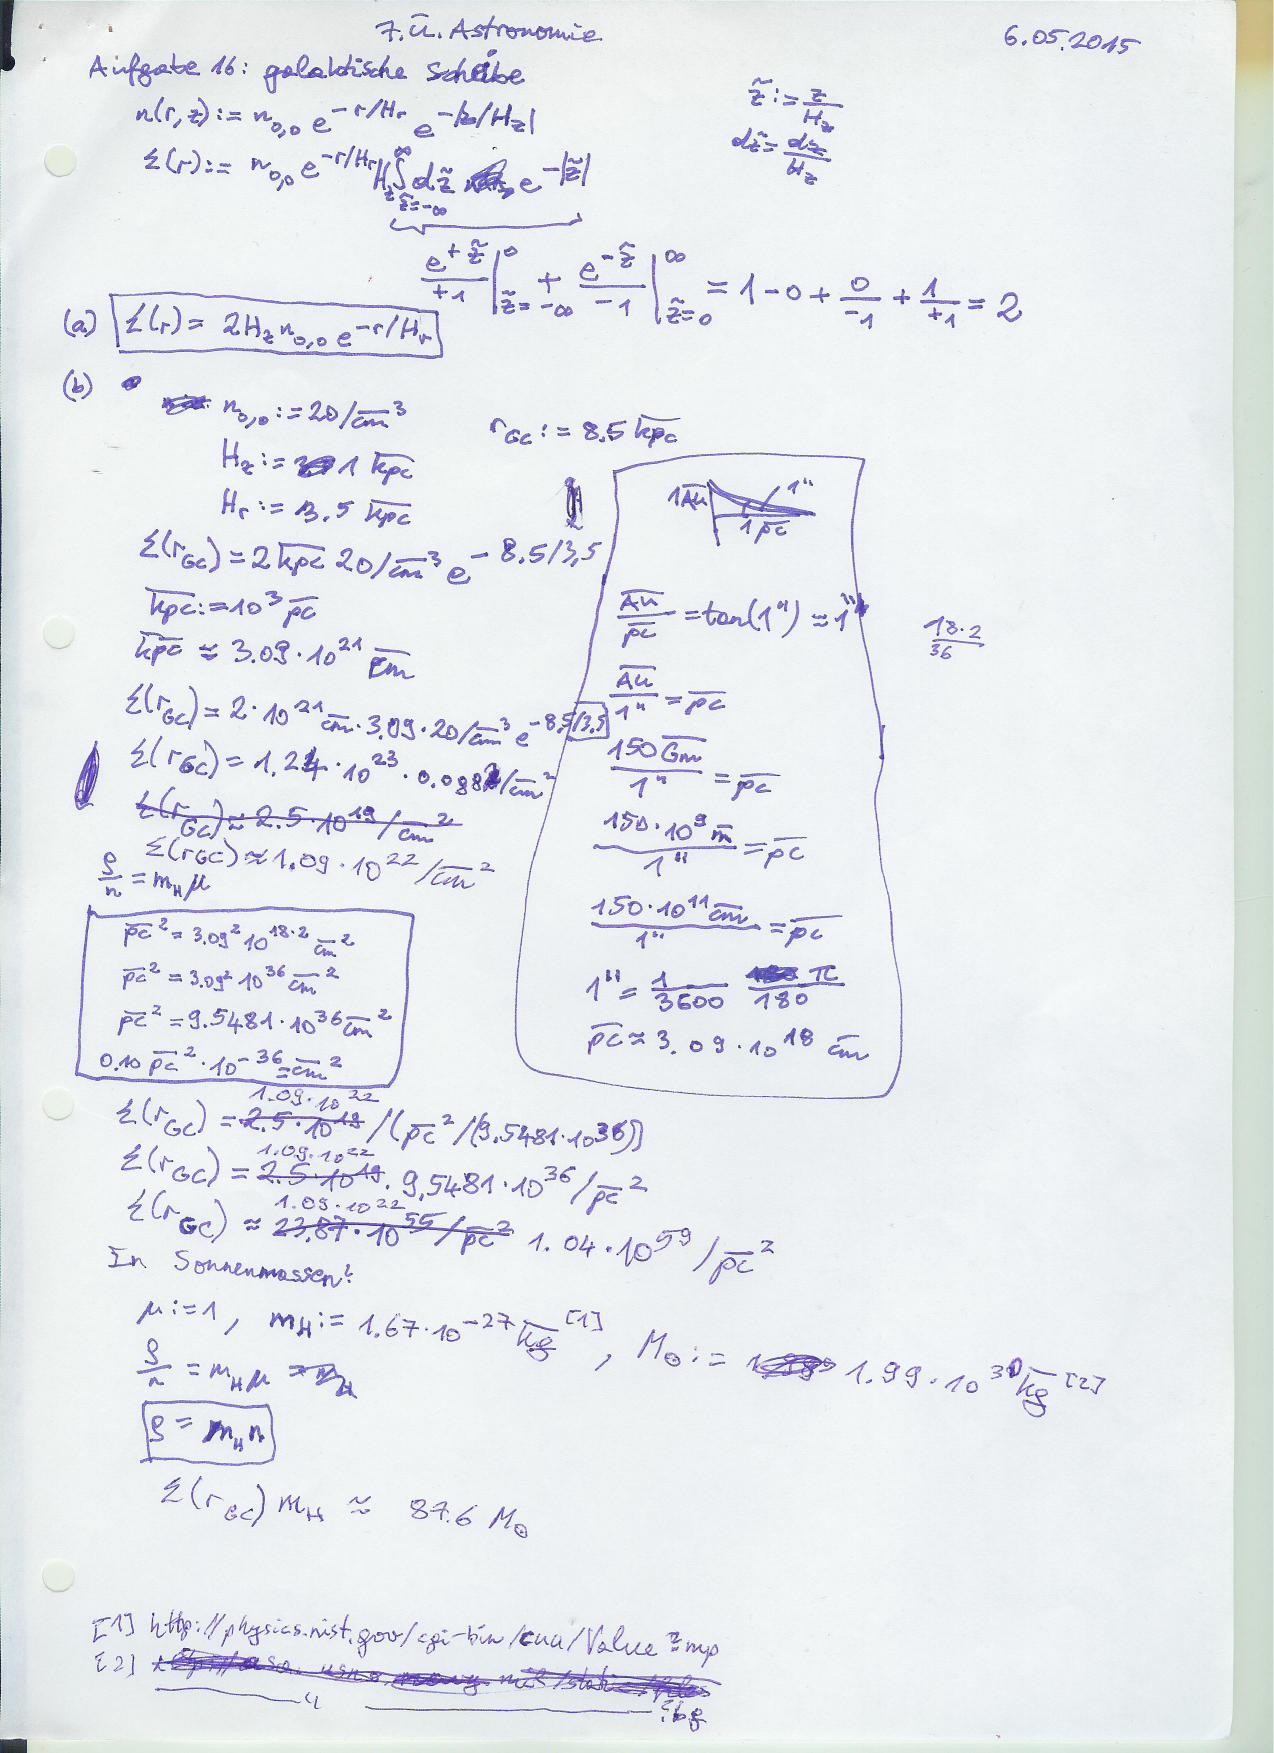 7. Ü. Astronomie
6.05.2015
Aufgabe 16: galaktische Scheibe
n(r, z) := n₀,₀ e^(-r/Hr) e^(-|z/Hz|)
z̃ := z/Hz
dz̃ = dz/Hz
Σ(r) := n₀,₀ e^(-r/Hr) Hz ∫_(z̃=-∞)^∞ dz̃ e^(-|z̃|)
e^(+z̃)/+1 |_(z̃=-∞)^0 + e^(-z̃)/-1 |_(z̃=0)^∞ = 1 - 0 + 0/-1 + 1/+1 = 2
(a) Σ(r) = 2Hz n₀,₀ e^(-r/Hr)
(b)
n₀,₀ := 20/cm³
r_GC := 8.5 kpc
Hz := 1 kpc
Hr := 3.5 kpc
Σ(r_GC) = 2 kpc 20/cm³ e^(-8.5/3,5)
kpc := 10³ pc
kpc ≈ 3.09 · 10²¹ cm
Σ(r_GC) = 2 · 10²¹ cm · 3.09 · 20/cm³ e^(-8,5/3,5)
Σ(r_GC) = 1.24 · 10²³ · 0.088/cm²
Σ(r_GC) ≈ 2.5 · 10¹⁹/cm²
Σ(r_GC) ≈ 1.09 · 10²²/cm²
ρ/n = m_H μ
pc² = 3.09² 10^(18·2) cm²
pc² = 3.09² 10³⁶ cm²
pc² = 9.5481 · 10³⁶ cm²
0.10 pc² · 10⁻³⁶ = cm²
1AU
1"
1 pc
AU/pc = tan(1") ≈ 1"
AU/1" = pc
150 Gm/1" = pc
150 · 10⁹ m/1" = pc
150 · 10¹¹ cm/1" = pc
1" = 1/3600 π/180
pc ≈ 3.09 · 10¹⁸ cm
18·2
36
1.09 · 10²²
Σ(r_GC) = 2.5 · 10¹⁹/(pc²/(9.5481 · 10³⁶))
1.09 · 10²²
Σ(r_GC) = 2.5 · 10¹⁹ · 9,5481 · 10³⁶/pc²
1.09 · 10²²
Σ(r_GC) ≈ 23,87 · 10⁵⁵/pc² 1.04 · 10⁵⁹/pc²
In Sonnenmassen:
μ := 1, m_H := 1.67 · 10⁻²⁷ kg [1], M☉ := 1.99 · 10³⁰ kg [2]
ρ/n = m_H μ = m_H
ρ = m_H n
Σ(r_GC) m_H ≈ 87.6 M☉
[1] http://physics.nist.gov/cgi-bin/cuu/Value?mp
[2]